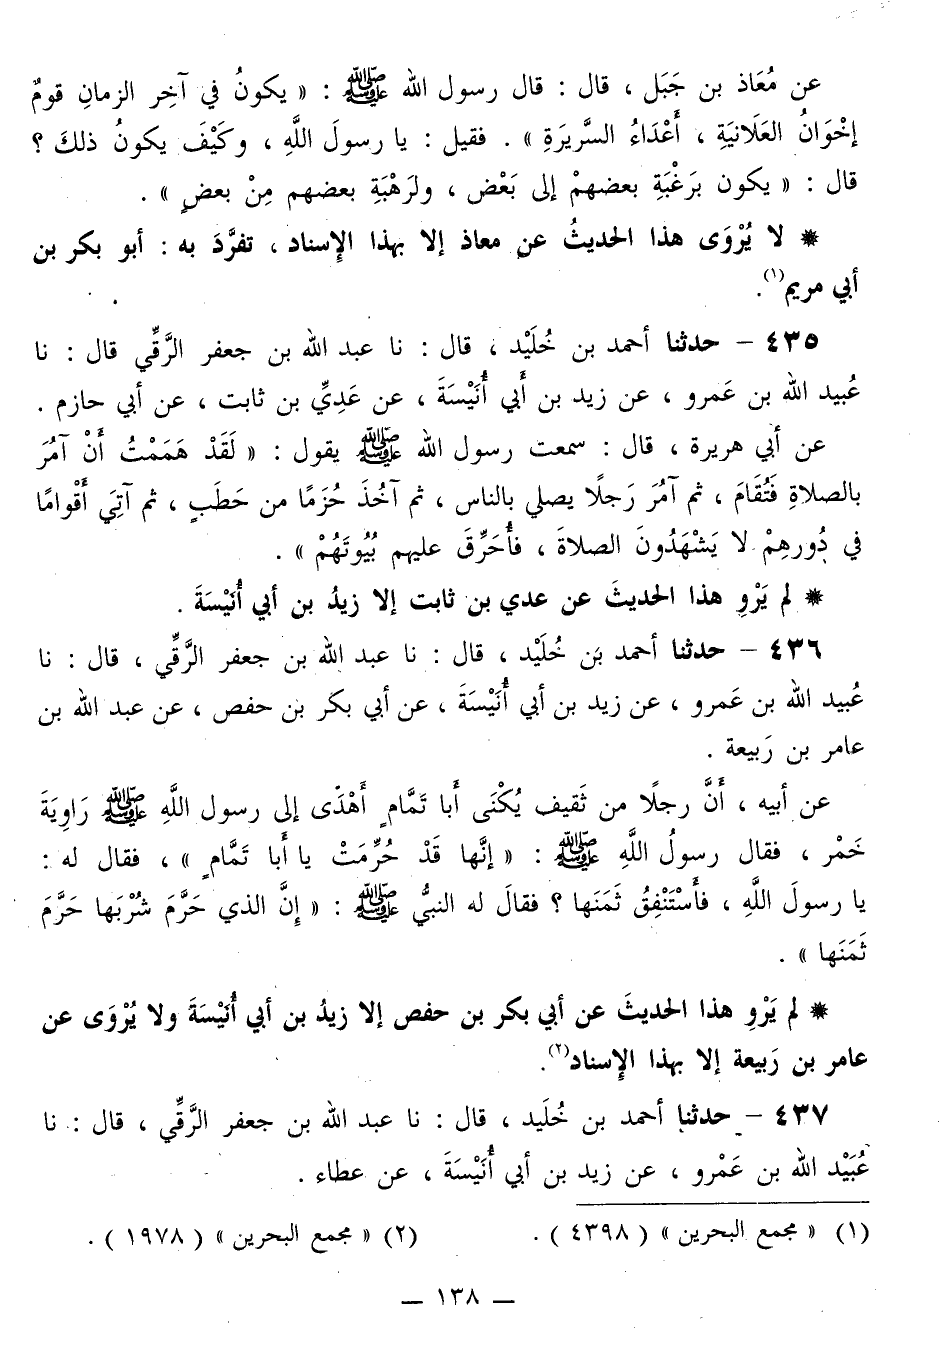 عن مُعَاذ بن جَبَل ، قال : قال رسول الله ﷺ : « يكونُ في آخِر الزمانِ قومٌ
إخْوَانُ العَلَانيَةِ ، أَعْدَاءُ السَّريرَةِ » . فقيل : يا رسولَ اللَّهِ ، وكَيْفَ يكونُ ذلكَ ؟
قال : « يكون برَغْبَةِ بعضهمْ إلى بَعْض ، ولرَهْبَةِ بعضهم مِنْ بعضٍ » .
* لا يُرْوَى هذا الحديثُ عن معاذ إلا بهذا الإسناد ، تفرَّدَ به : أبو بكر بن
أبي مريم(١).
٤٣٥ – حدثنا أحمد بن خُلَيْد ، قال : نا عبد الله بن جعفر الرَّقِّي قال : نا
عُبيد الله بن عَمرو ، عن زيد بن أبي أُنَيْسَةَ ، عن عَدِيِّ بن ثابت ، عن أبي حازم .
عن أبي هريرة ، قال : سمعت رسول الله ﷺ يقول : « لَقَدْ هَمَمْتُ أَنْ آمُرَ
بالصلاةِ فَتُقَامَ ، ثم آمُرَ رَجلًا يصلي بالناس ، ثم آخُذَ حُزَمًا من حَطَبٍ ، ثم آتِيَ أَقْوامًا
في دُورهِمْ لا يَشْهَدُونَ الصلاةَ ، فأُحَرِّقَ عليهم بُيُوتَهُمْ » .
* لم يَرْوِ هذا الحديثَ عن عدي بن ثابت إلا زيدُ بن أبي أُنَيْسَةَ .
٤٣٦ – حدثنا أحمد بن خُلَيْد ، قال : نا عبد الله بن جعفر الرَّقِّي ، قال : نا
عُبيد الله بن عَمرو ، عن زيد بن أبي أُنَيْسَةَ ، عن أبي بكر بن حفص ، عن عبد الله بن
عامر بن رَبيعة .
عن أبيه ، أَنَّ رجلًا من ثَقيف يُكْنَى أَبا تَمَّامٍ أَهْدَى إلى رسول اللَّهِ ﷺ رَاوِيَةَ
خَمْر ، فقال رسولُ اللَّهِ ﷺ : « إنَّها قَدْ حُرِّمَتْ يا أَبا تَمَّامٍ » ، فقال له :
يا رسولَ اللَّهِ ، فأَسْتَنْفِقُ ثَمَنَها ؟ فقالَ له النبيُّ ﷺ : « إنَّ الذي حَرَّمَ شُرْبَها حَرَّمَ
ثَمَنَها » .
* لم يَرْوِ هذا الحديثَ عن أبي بكر بن حفص إلا زيدُ بن أبي أُنَيْسَةَ ولا يُرْوَى عن
عامر بن رَبيعة إلا بهذا الإسناد(٢).
٤٣٧ – حدثنا أحمد بن خُلَيد ، قال : نا عبد الله بن جعفر الرَّقِّي ، قال : نا
عُبَيْد الله بن عَمْرو ، عن زيد بن أبي أُنَيْسَةَ ، عن عطاء .
(١) « مجمع البحرين » ( ٤٣٩٨ ) . (٢) « مجمع البحرين » ( ١٩٧٨ ) .
— ١٣٨ —